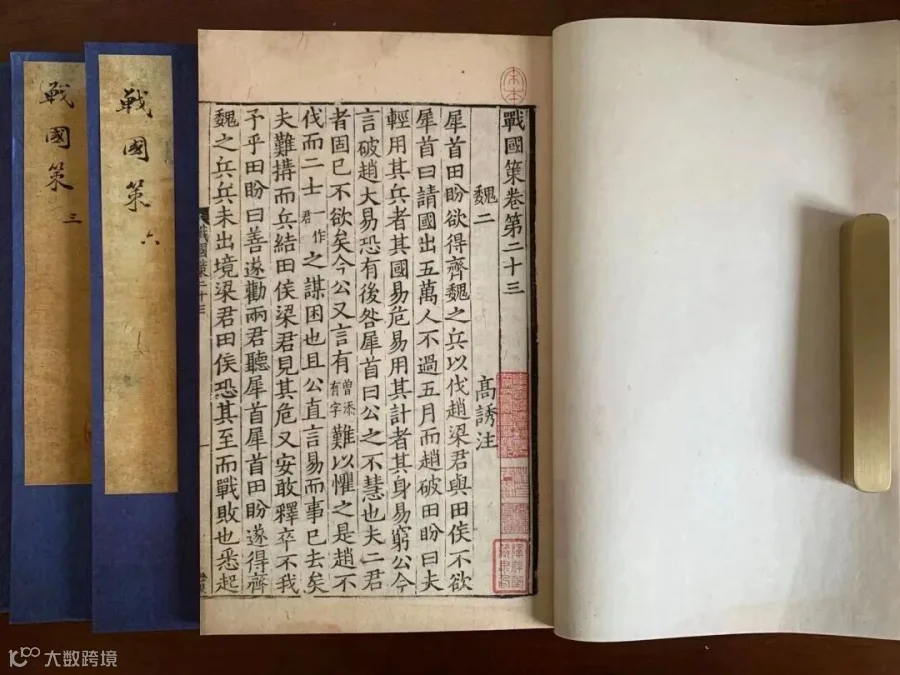 宋本
戰國策卷第二十三
魏二 髙誘注
犀首田盼欲得齊魏之兵以伐趙梁君與田侯不欲
犀首曰請國出五萬人不過五月而趙破田盼曰夫
輕用其兵者其國易危易用其計者其身易窮公今
言破趙大易恐有後咎犀首曰公之不慧也夫二君
者固巳不欲矣今公又言有曾添有字難以懼之是趙不
伐而二士一作君之謀困也且公直言易而事巳去矣
夫難搆而兵結田侯梁君見其危又安敢釋卒不我
予乎田盼曰善遂勸兩君聽犀首犀首田盼遂得齊
魏之兵兵未出境梁君田侯恐其至而戰敗也悉起
戰國策二十三
戰國策 六
戰國策 三
大数跨境